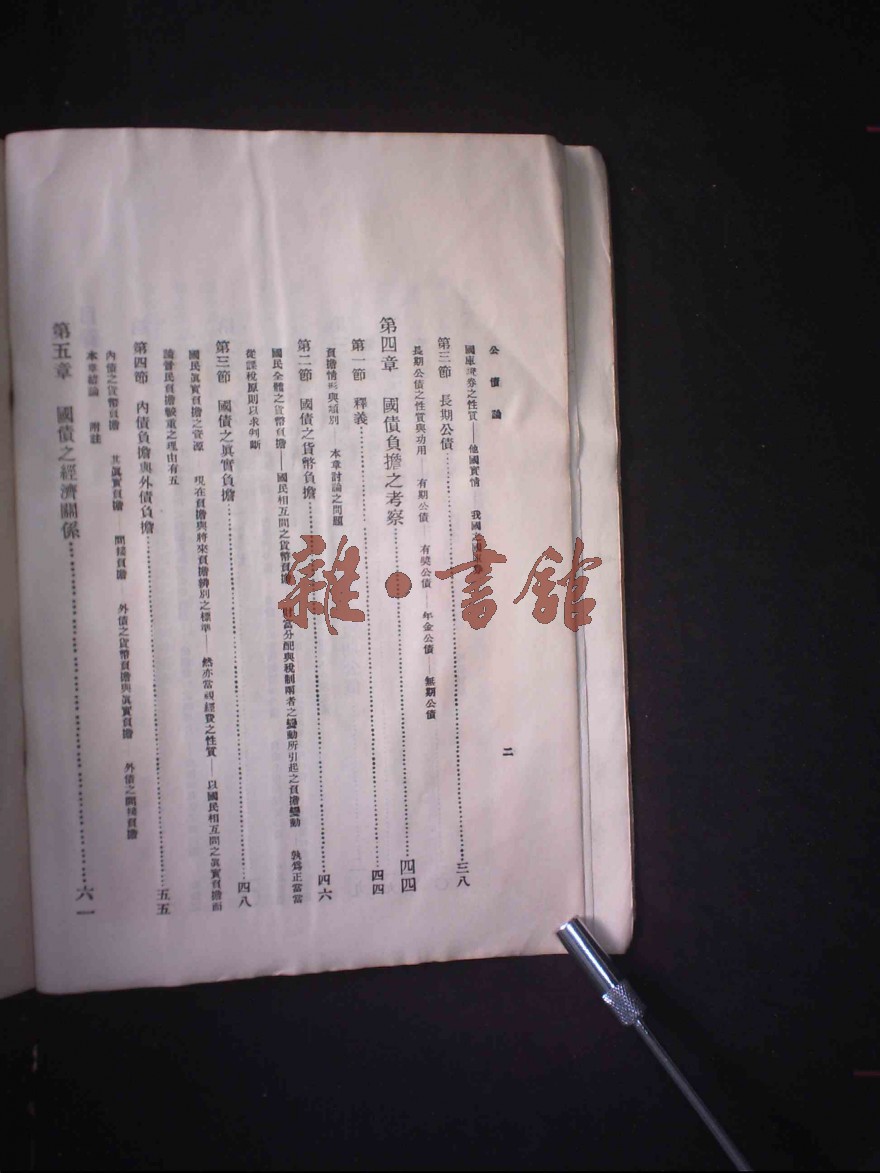 公債論
二
國庫證券之性質——他國實情 我國之
第三節 長期公債……三八
長期公債之性質與功用——有期公債——有獎公債——年金公債——無期公債
第四章 國債負擔之考察……四四
第一節 釋義……四四
負擔情形與類別——本章討論之問題
第二節 國債之貨幣負擔……四六
國民全體之貨幣負擔——國民相互間之貨幣負擔 財富分配與稅制兩者之變動所引起之負擔變動 孰爲正當當
從課稅原則以求判斷
第三節 國債之眞實負擔……四八
國民眞實負擔之資源 現在負擔與將來負擔辨別之標準——然亦當視經費之性質——以國民相互間之眞實負擔而
論昔民負擔較重之現由有五
第四節 內債負擔與外債負擔……五五
內債之貨幣負擔 其眞實負擔——間接負擔——外債之貨幣負擔與眞實負擔 外債之間接負擔
本章結論 附註
第五章 國債之經濟關係……六一
雜·書館